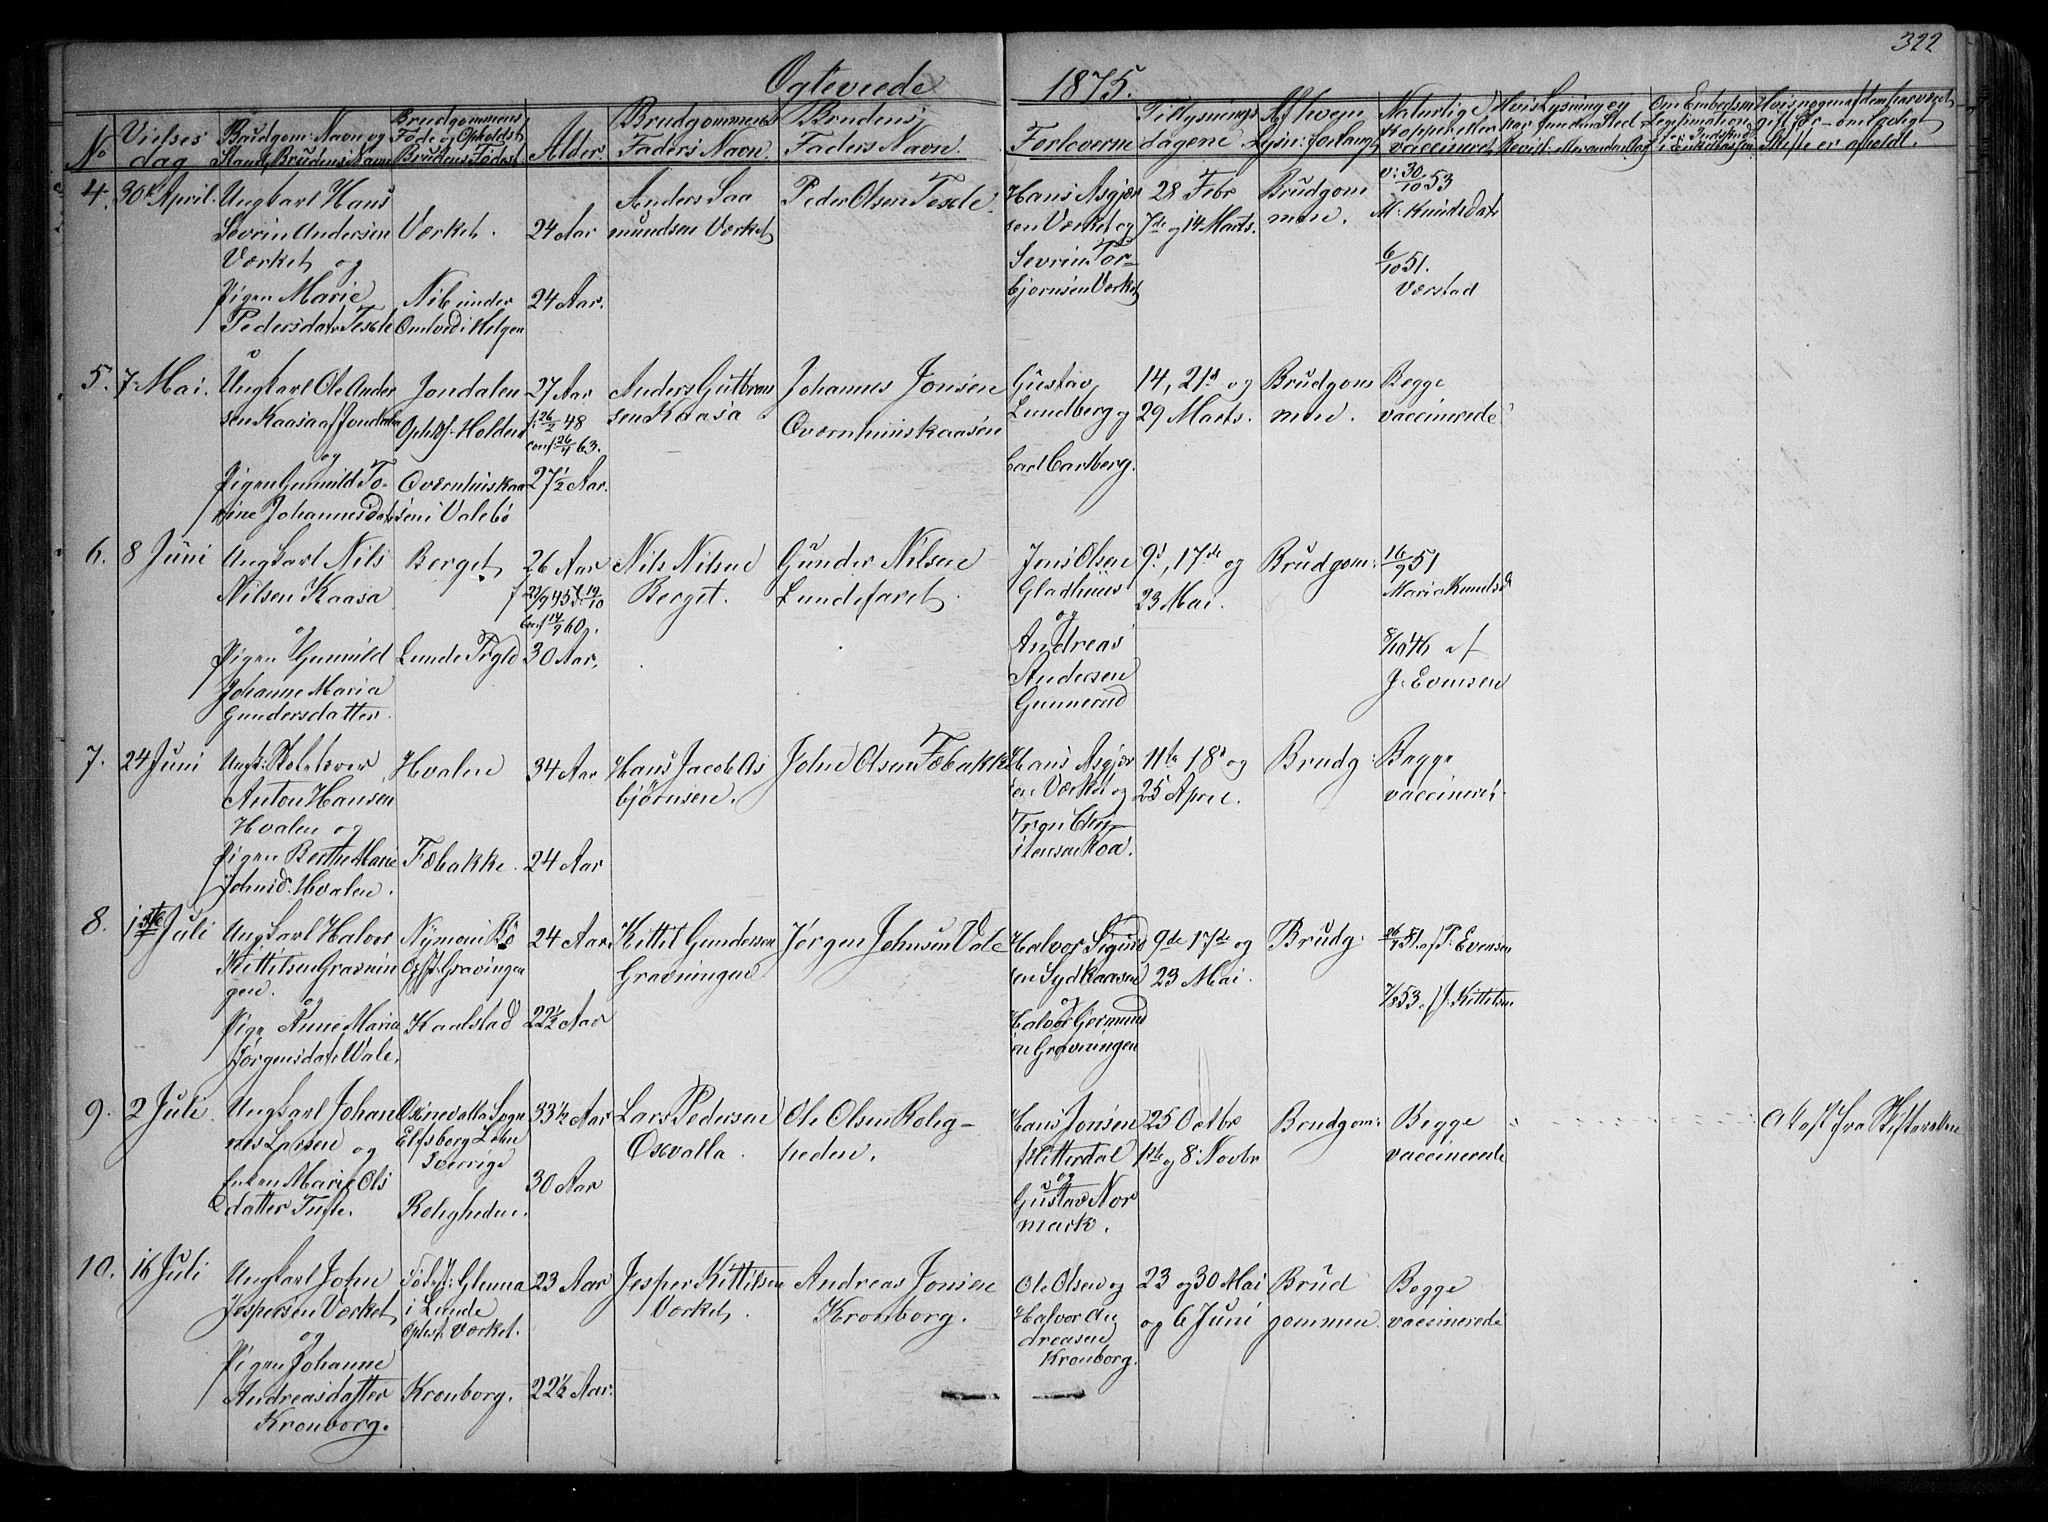 322
Ogteviede 1875.
No
Vielses dag
Brudgom: Navn og Stand, Brudens Navn
Brudgommens Føde og Opholdst Brudens Fødest
Alder.
Brudgommens Faders Navn.
Brudens Faders Navn.
Forloverne
Tillysnings dagene
Af hvem Lysn: forlangt
Naturlige Kopper eller vaccineret
Hvis Lysning ej
Om Embedsm Legitimation
Hvis nogen af dem har været gift før – om lovligt Skifte er afholdt.
4. 30te April.
Ungkarl Hans
Sevrin Andersen
Værket og
Pigen Marie
Pedersdatr Teksle
Værket.
Nibe under
Omtvedt i Helgen
24 Aar
24 Aar.
Anders Saa
mundsen Værket
Peder Olsen
Hans Asgjer
sen Værket og
Sevrin Tor-
bjørnsen Værket
28 Febr
7de og 14 Marts.
Brudgom
men.
v: 30/10 53
M. Knudsdatr
6/10 51.
Værstad
5. 7 Mai.
Ungkarl Ole Ander
sen Kaasa af Jondalen
og
Pigen Gunnild To-
rine Johannesdatr
Jondalen
Opholdst: Holden
Overnhuuskaa
sen i Valebø
27 Aar
f: 26/2 48
conf 26/4 63.
27 1/2 Aar.
Anders Gutbran
sen Kaasa
Johannes Jonsen
Overnhuuskaasen
Gustav
Lundberg og
Carl Carlberg.
14, 21d og
29 Marts.
Brudgom
men.
Begge
vaccinerede
6. 8 Juni
Ungkarl Nils
Nilsen Kaasa
og
Pigen Gunnild
Johanne Maria
Gundersdatter.
Berget
Lunde Prgld
26 Aar
conf 14/9 60.
30 Aar.
Nils Nilsen
Berget.
Gunder Nilsen
Lundefaret.
Jens Olsen
Gladhuus
og
Andreas
Andersen
Gunnerud
9d, 17de og
23 Mai.
Brudgom:
16/9 51
Maria Knudsd
8/10 46 af
J. Evensen
7. 24 Juni
Ungk:
Anton Hansen
Hvalen og
Pigen Berthe Marie
Johnsd. Hvalen.
Hvalen
Fæbakke.
34 Aar
24 Aar
Hans Jacob As
bjørnsen.
John Olsen Fæbakke
Hans Asgjer
sen Værket og
11te 18d og
25 April.
Brudg:
Begge
vaccineret
8. 1ste Juli
Ungkarl Halvor
Kittilsen Gravnin
gen.
og
Pige Anne Maria
Jørgensdatr Wale.
Nymoen i Bø
Opst: Gravningen
Kaalstad
24 Aar.
22 1/2 Aar
Kittil Gundersen
Gravningen
Jørgen Johnsen Vale
Halvor Sigurd
sen Sydkaasen
og
Halvor Germund
sen Gravningen
9de 17de og
23 Mai.
Brudg:
26/9 51. af P: Evensen
7/8 53. af J: Kittilsen
9. 2 Juli
Ungkarl Johan
nes Larsen og
Enken Marie Ols
datter Tufte.
Oxnevalla Sogn
Elfsborg Lehn
Sverrige
Roligheden.
33 1/2 Aar
30 Aar
Lars Pedersen
Oxvalla.
Ole Olsen Rolig-
heden.
Hans Jonsen
Hitterdal
og
Gustav Nor
mark.
25 Octbr
1ste og 8 Novbr
Brudgom:
Begge
vaccinerede
Attest fra Skifteretten
10. 16 Juli
Ungkarl John
Jespersen Værket
og
Pigen Johanne
Andreasdatter
Kronborg.
Fødest: Glenna
i Lunde
Opholdst. Værket.
Kronborg.
23 Aar
22 1/2 Aar.
Jesper Kittilsen
Værket.
Andreas Jonsen
Kronborg.
Ole Olsen og
Halvor An
dreasen
Kronborg.
23 og 30 Mai
og 6 Juni
Brud
gommen.
Begge
vaccinerede